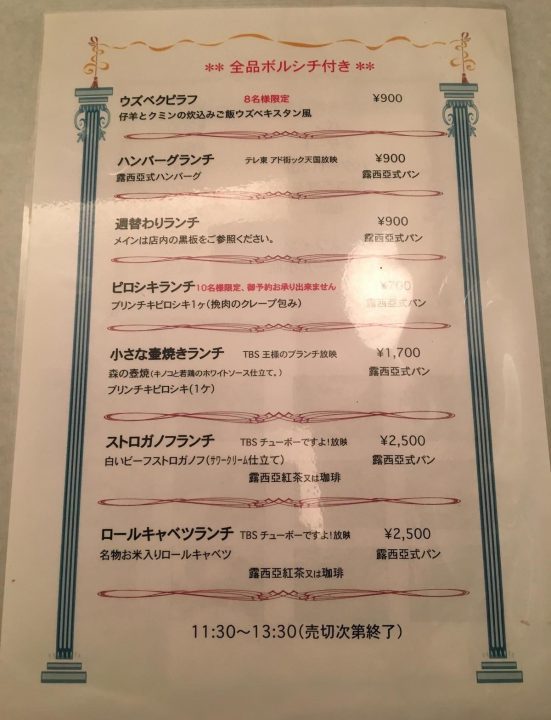 ** 全品ボルシチ付き **
ウズベクピラフ 8名様限定 ¥900
仔羊とクミンの炊込みご飯ウズベキスタン風
ハンバーグランチ テレ東 アド街ック天国放映 ¥900
露西亞式ハンバーグ 露西亞式パン
週替わりランチ ¥900
メインは店内の黒板をご参照ください。 露西亞式パン
ピロシキランチ 10名様限定、御予約お承り出来ません ¥700
ブリンチキピロシキ1ヶ(挽肉のクレープ包み) 露西亞式パン
小さな壷焼きランチ TBS 王様のブランチ放映 ¥1,700
森の壺焼(キノコと若鶏のホワイトソース仕立て。) 露西亞式パン
ブリンチキピロシキ(1ケ)
ストロガノフランチ TBS チューボーですよ!放映 ¥2,500
白いビーフストロガノフ(サワークリーム仕立て) 露西亞式パン
露西亞紅茶又は珈琲
ロールキャベツランチ TBS チューボーですよ!放映 ¥2,500
名物お米入りロールキャベツ 露西亞式パン
露西亞紅茶又は珈琲
11:30～13:30(売切次第終了)